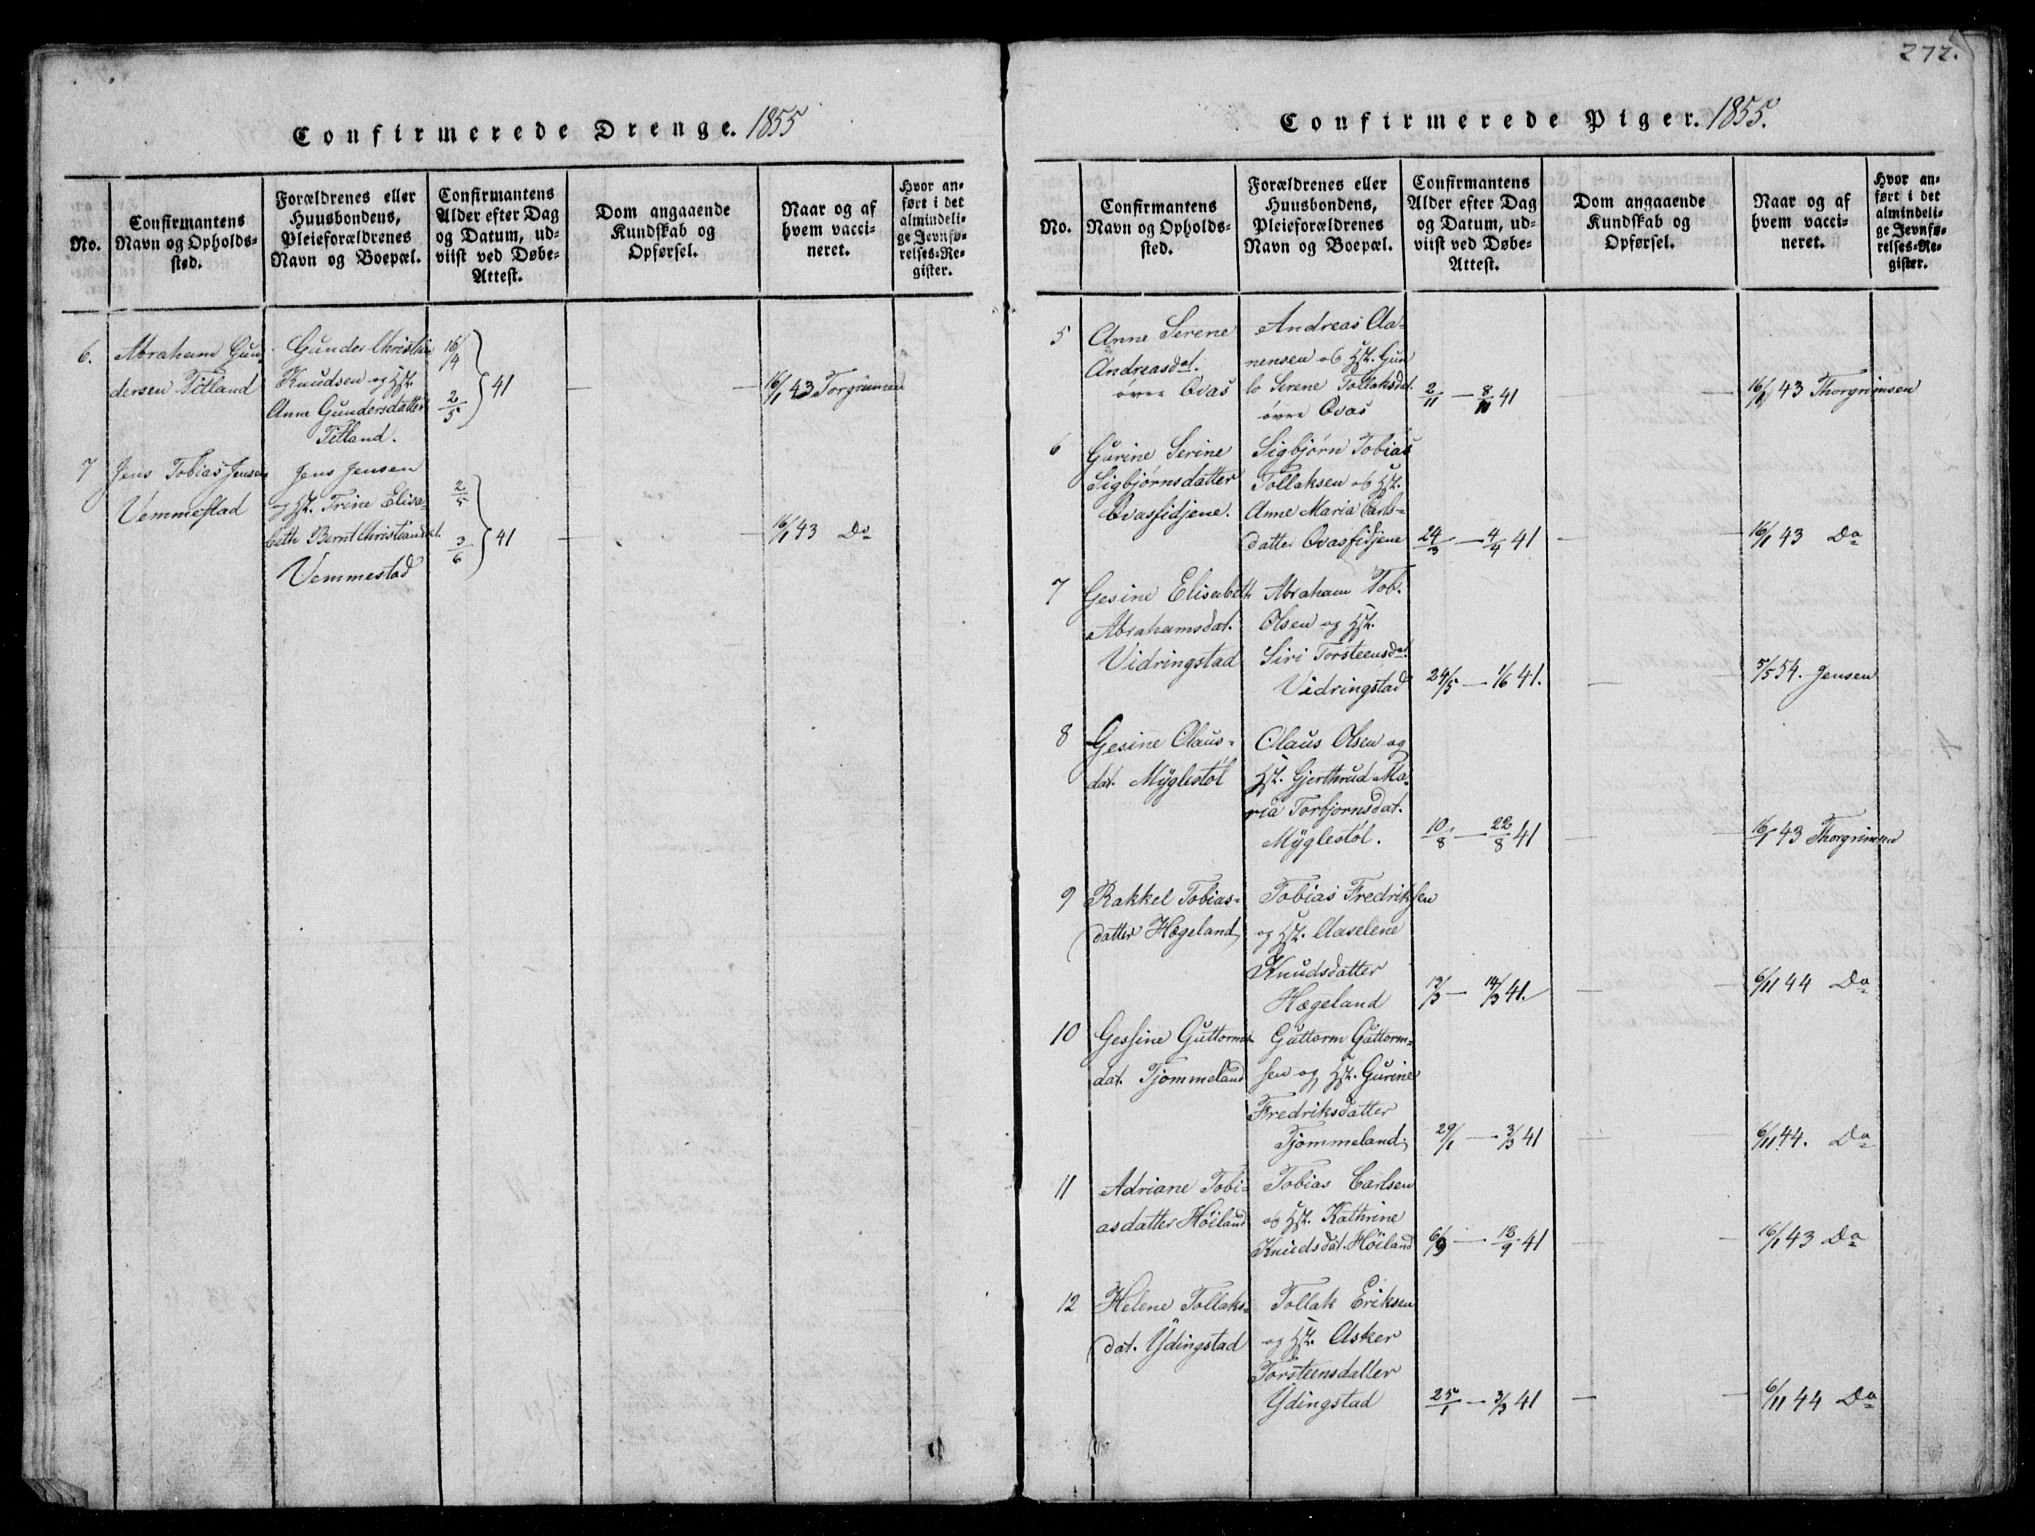 272.
Confirmerede Drenge. 1855
No.
Confirmantens
Navn og Opholds-
sted.
Forældrenes eller
Huusbondens,
Pleieforældrenes
Navn og Boepæl.
Confirmantens
Alder efter Dag
og Datum, ud-
viist ved Døbe-
Attest.
Dom angaaende
Kundskab og
Opførsel.
Naar og af
hvem vacci-
neret.
Hvor an-
ført i det
almindeli-
ge Jevnfø-
relses-Re-
gister.
6.
Abraham Gun-
dersen Titland
Gunder Christian
Knudsen og Hst.
Anne Gundersdatter
Titland.
16/4
2/5
41
16/1 43 Torgrimsen
7
Jens Tobias Jensen
Vemmestad
Jens Jensen
og Hst. Trine Elisa-
beth Bernt Christiansdt.
Vemmestad
2/5
3/6
41
16/1 43 Do
Confirmerede Piger. 1855.
No.
Confirmantens
Navn og Opholds-
sted.
Forældrenes eller
Huusbondens,
Pleieforældrenes
Navn og Boepæl.
Confirmantens
Alder efter Dag
og Datum, ud-
viist ved Døbe-
Attest.
Dom angaaende
Kundskab og
Opførsel.
Naar og af
hvem vacci-
neret.
Hvor an-
ført i det
almindeli-
ge Jevnfø-
relses-Re-
gister.
5
Anne Serene
Andreasdat.
øvre Ovas
Andreas Aa-
nensen og Hst. Gun
lo Serene Tollaksdat.
øvre Ovas
2/11 — 8/11 41
16/1 43 Thorgrimsen
6
Gurine Serine
Sigbjørnsdatter
Ovasfidjene.
Sigbjørn Tobias
Tollaksen og Hst.
Anne Maria Carls-
datter Ovasfidjene
24/3 — 4/4 41
16/1 43 Do
7
Gesine Elisabeth
Abrahamsdat.
Vidringstad
Abraham Tob.
Olsen og Hst.
Siri Torsteensdat.
Vidringstad
24/5 — 1/6 41.
5/5 54. Jensen
8
Gesine Claus-
dat. Myglestøl
Claus Olsen og
Hst. Gjerthrud Ma-
ria Torbjornsdat.
Myglestøl.
10/8 — 22/8 41
16/1 43 Thorgrimsen
9
Rakkel Tobias-
datter Hægeland
Tobias Fredriksen
og Hst. Aaselene
Knudsdatter
Hægeland
13/3 — 14/3 41.
6/11 44 Do
10
Gessine Guttorms
dat. Tjommeland
Guttorm Guttorm-
sen og Hst. Gurine
Fredriksdatter
Tjommeland.
29/1 — 3/3 41
6/11 44. Do
11
Adriane Tobi-
asdatter Høiland
Tobias Carlsen
og Hst. Kathrine
Knudsdat. Høiland
6/9 — 13/9 41
16/1 43 Do
12
Helene Tollaks-
dat. Ydingstad
Tollak Eriksen
og Hst. Asker
Torsteensdatter
Ydingstad
25/1 — 3/3 41
6/11 44 Do